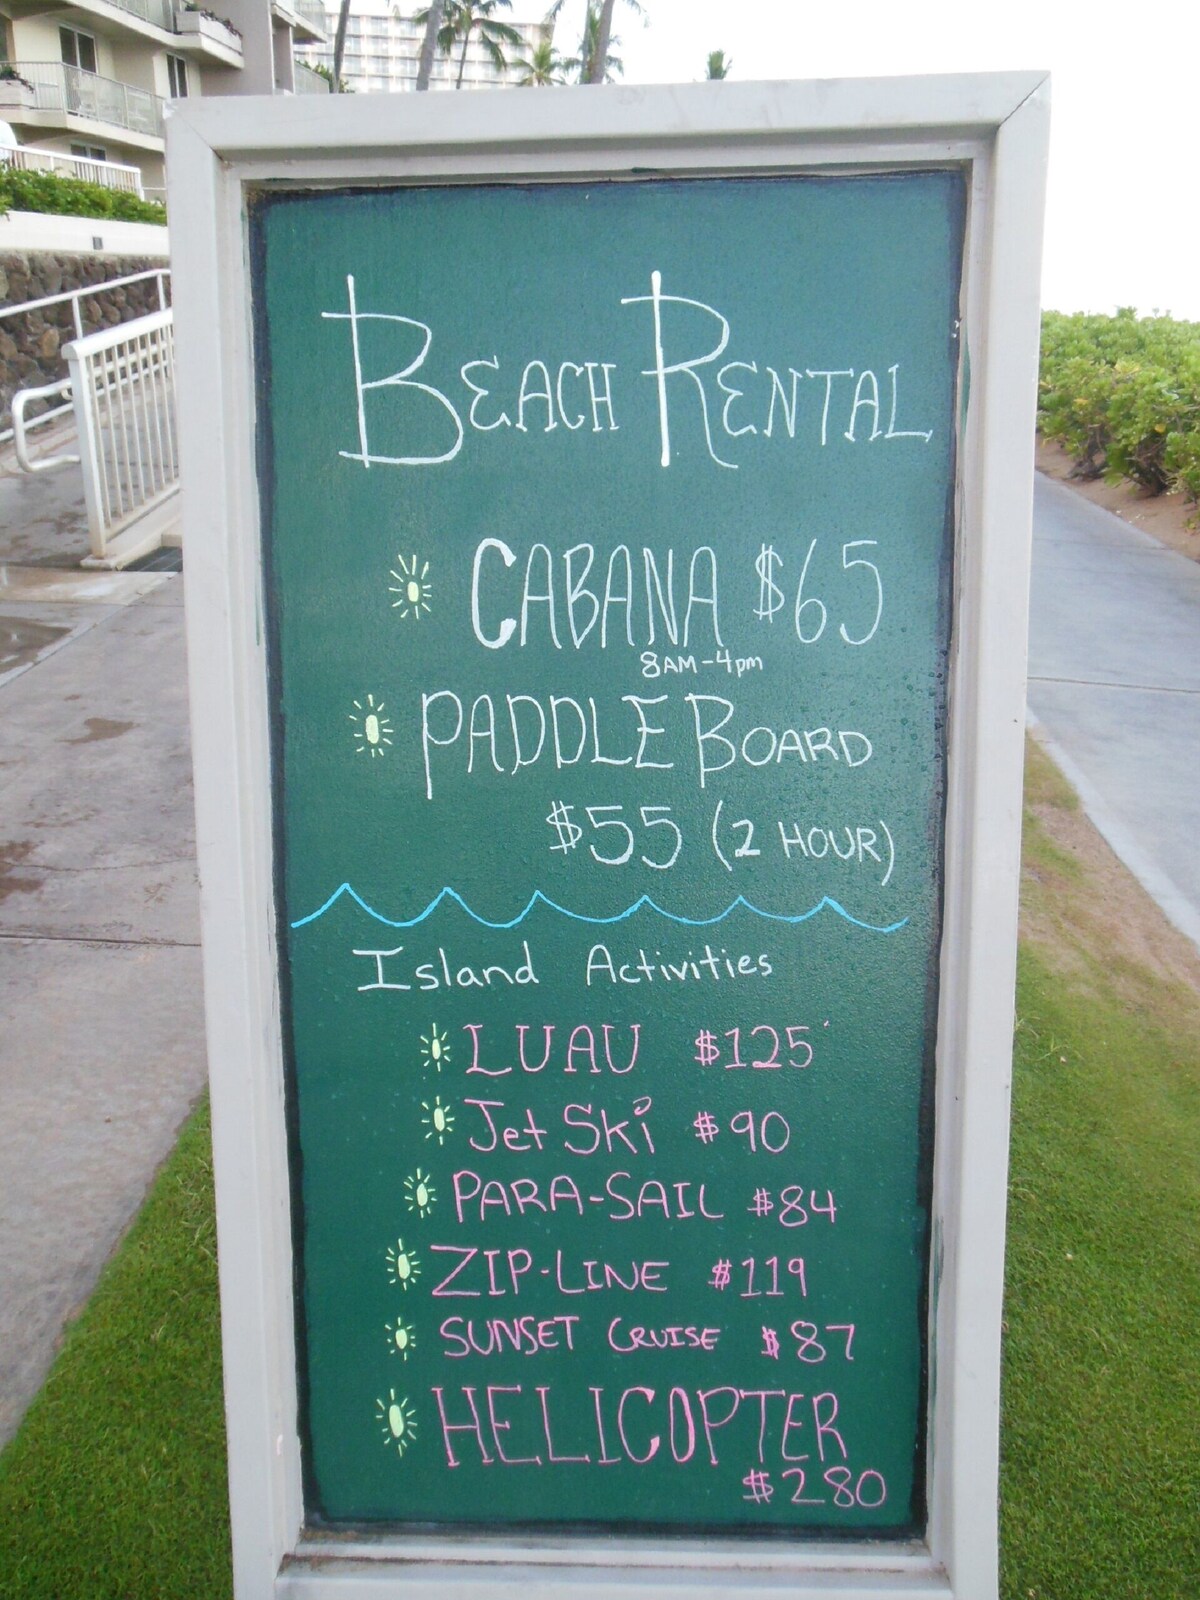 BEACH RENTAL
CABANA $65
8AM-4pm
PADDLE BOARD
$55 (2 HOUR)
Island Activities
LUAU $125
Jet Ski $90
PARA-SAIL $84
ZIP-LINE $119
SUNSET CRUISE $87
HELICOPTER
$280